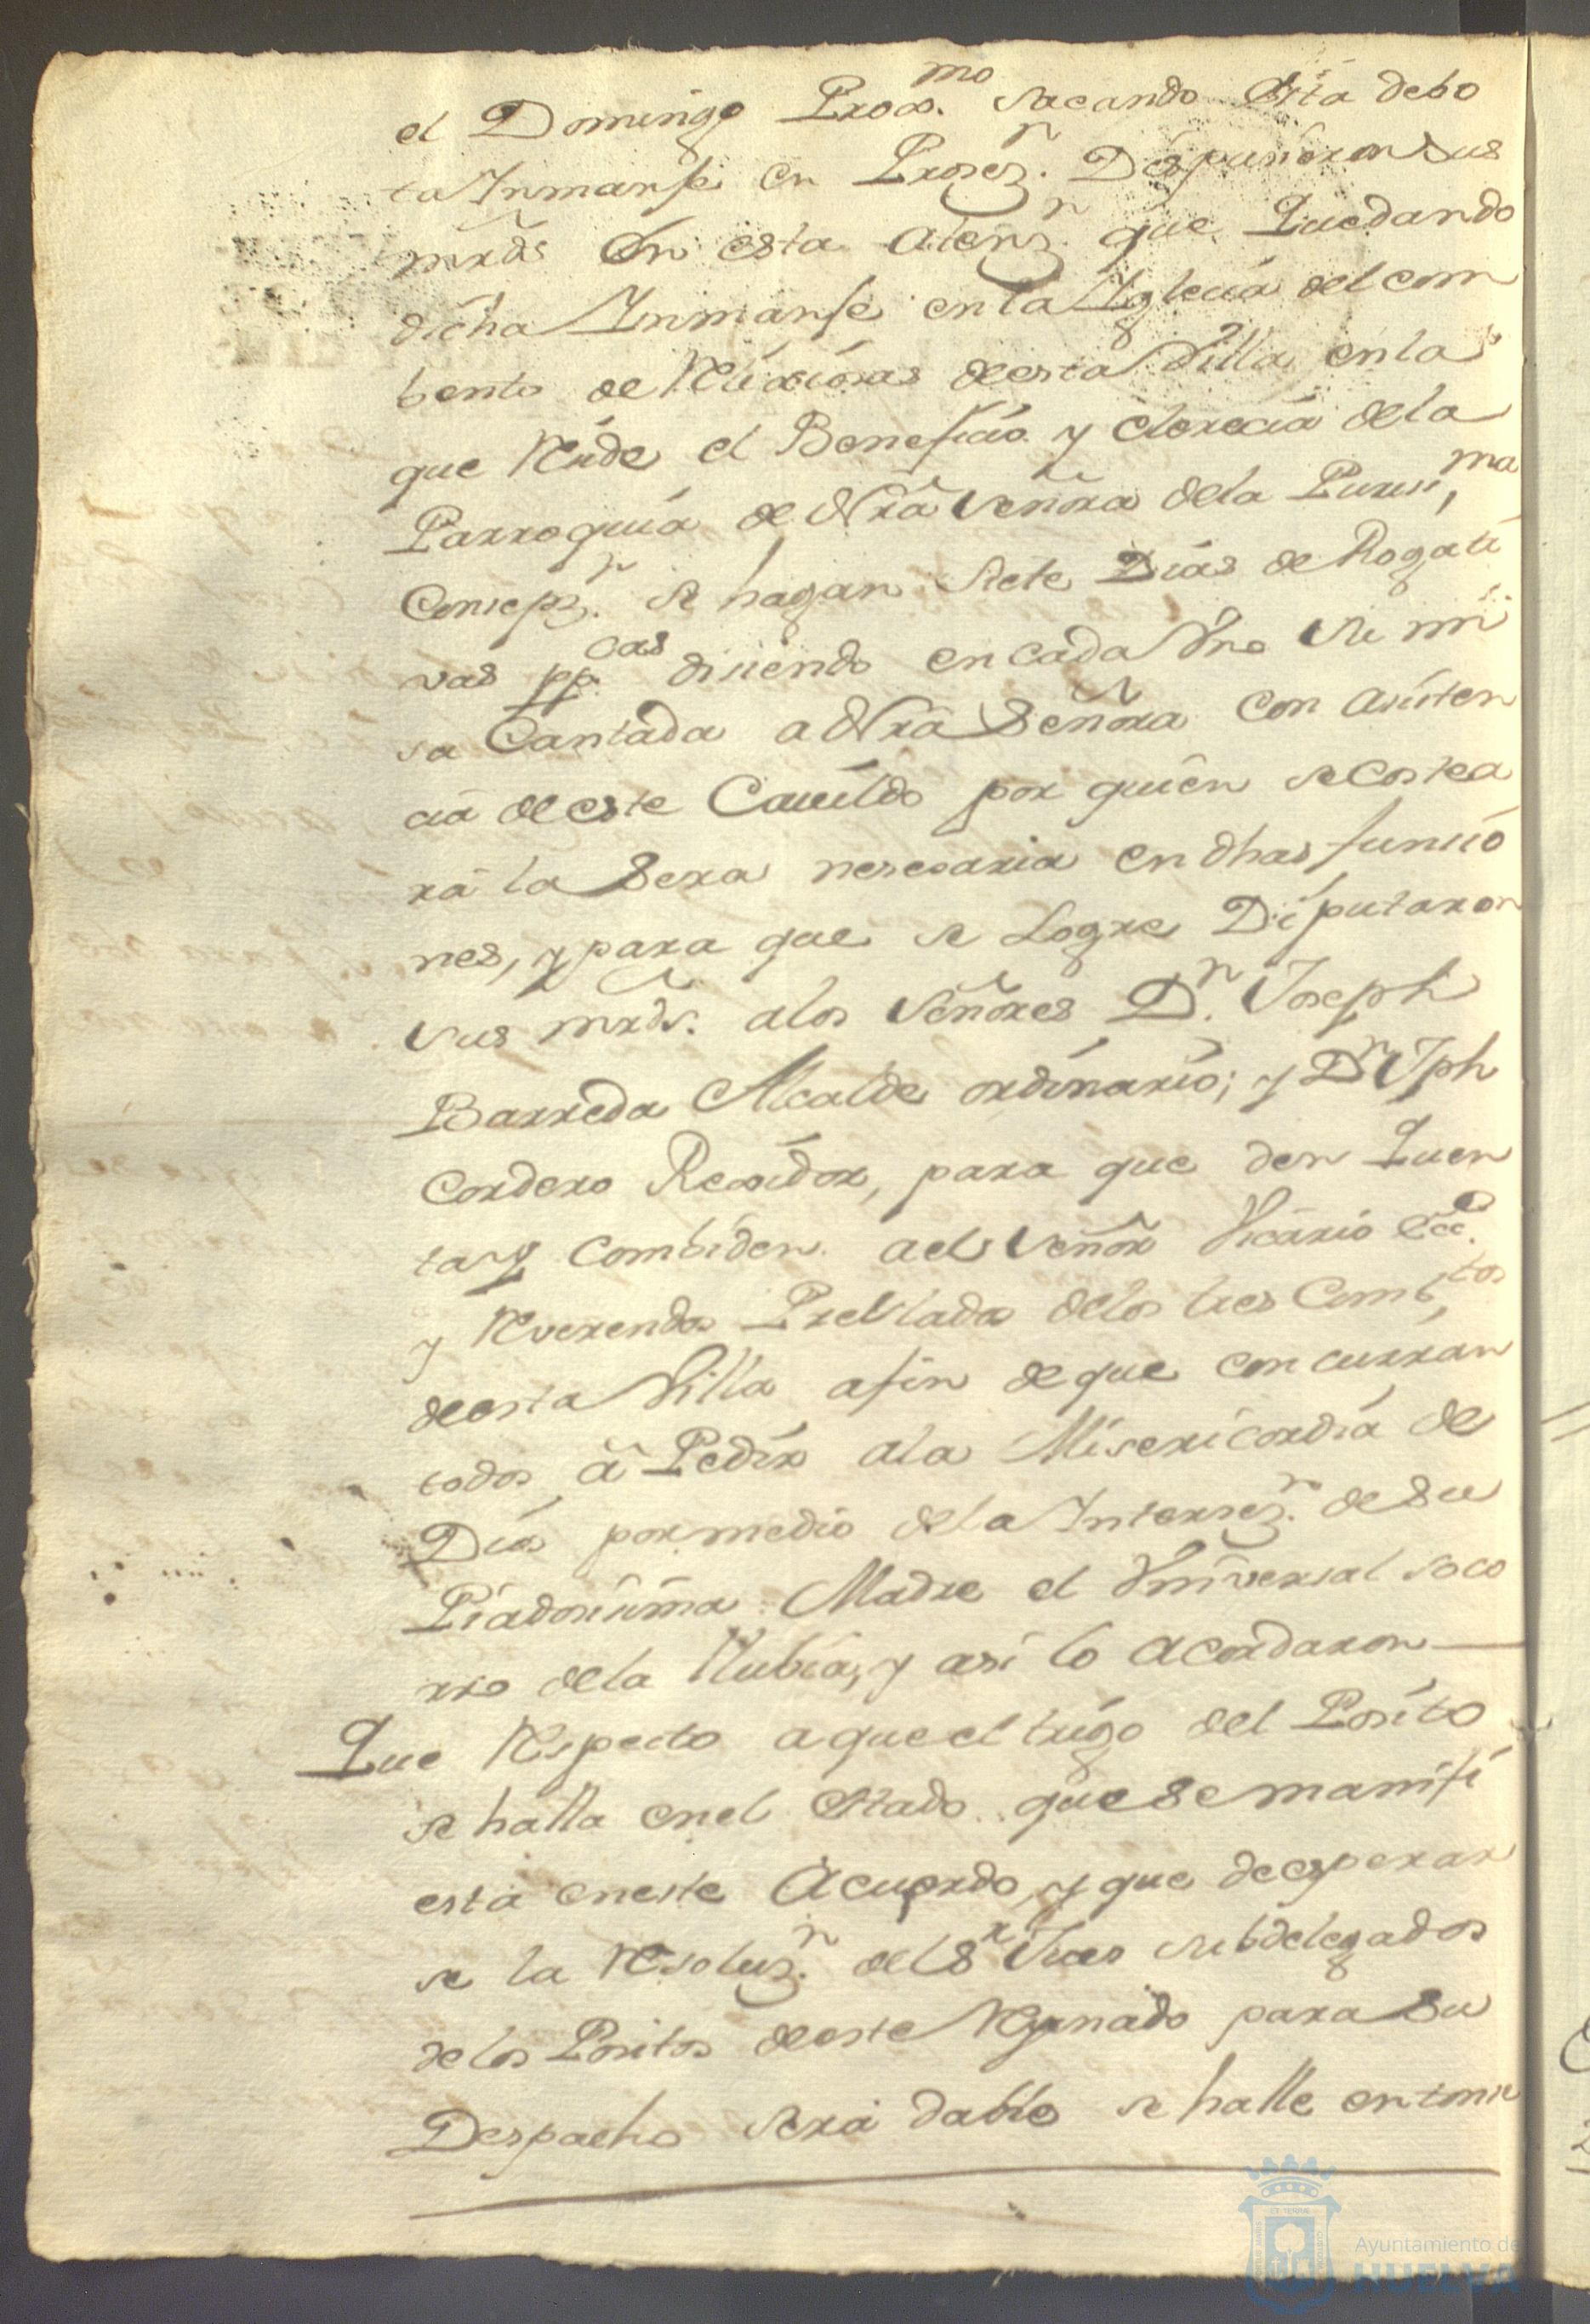 el Domingo Prox.mo sacando esta debo
ta Inmanse en Prosez.n Dispusieron sus
mrds en esta atenz.n que quedando
dicha Inmanse en la Iglecia del com
bento de Relixiosas de esta Villa en la
que Recide el Beneficio y clerecia de la
Parroquia de Nrã Señora de la Purisi,ma
Consepz.n se hagan siete Dias de Rogati
vas pp.cas disiendo en cada Uno su mi
sa Cantada a Nrã Señora con asisten
cia de este Cauildo por quien se costea
rá la Sera nesesaria en dhas funcio
nes, y para que se logre Diputaron
sus mrds. a los Señores D.n Joseph
Barreda Alcalde ordinario; y Dn Jph
Cordero Rexidor, para que den quen
ta y combiden ael Señor Vicario Ecc.o
y Reverendos Prelados de los tres Comb,tos
de esta Villa a fin de que concurran
todos á Pedir a la Misericordia de
Dios por medio de la Intersez.n de su
Piadosisima Madre el Universal soco
rro de la Llubia, y asi lo acordaron
Que Respecto a que el trigo del Posito
se halla en el estado que se manifi
esta en este Acuerdo, y que de esperar
se la Resoluz.n del Sr Jues subdelegados
de los Positos de este Reynado para su
Despacho será dable se halle entonse
Ayuntamiento de
HUELVA